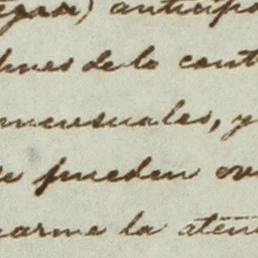 anticipa
de lo cont
mensuales, y
pueden
carme la aten